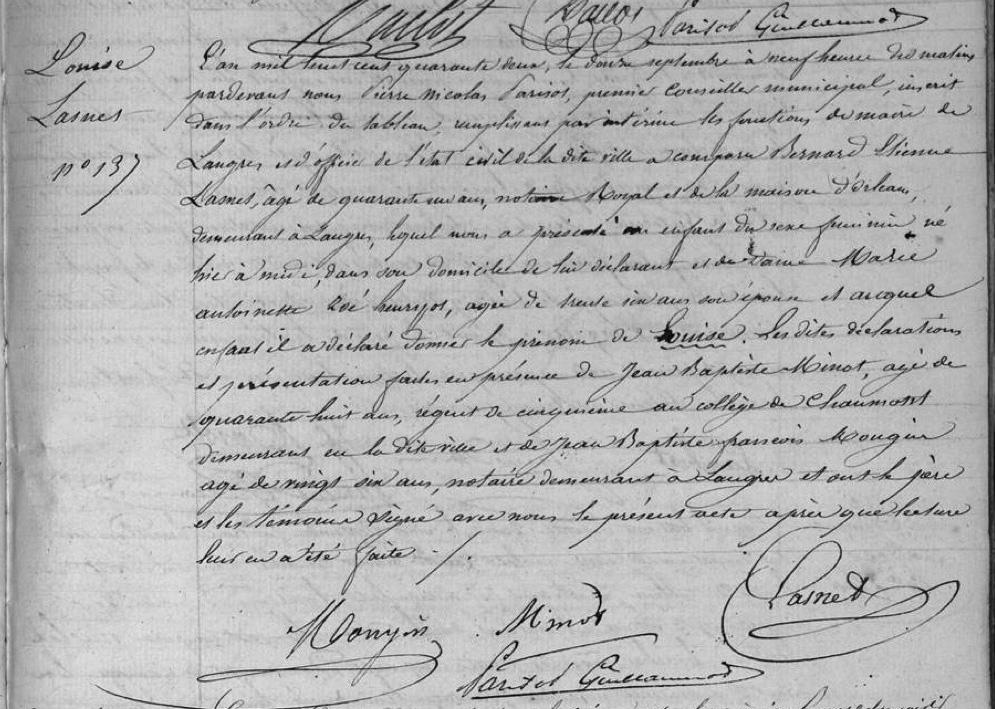 Parisot Guillaumot
Louise
Lasnet
n° 137
L'an mil huit cent quarante deux, le douze septembre à neuf heures du matin
pardevant nous Pierre Nicolas Parisot, premier conseiller municipal, inscrit
dans l'ordre du tableau, remplissant par intérim les fonctions de maire de
Langres et d'officier de l'état civil de la dite ville a comparu Bernard Etienne
Lasnet, âgé de quarante ans, notaire Royal et de la maison d'Orléans,
demeurant à Langres, lequel nous a présenté un enfant du sexe féminin né
hier à midi, dans son domicile de lui déclarant et de Dame Marie
antoinette Zoé henryot, agée de trente six ans son épouse et auquel
enfant il a déclaré donner le prénom de Louise. Les dites déclarations
et présentation faites en présence de Jean Baptiste Minot, agé de
quarante huit ans, régent de cinquième au collège de Chaumont
demeurant en la dite ville et de Jean Baptiste françois Mougin
agé de vingt six ans, notaire demeurant à Langres et ont le père
et les témoins signé avec nous le présent acte après que lecture
leur en a été faite ./.
Lasnet
Mougin Minot
Parisot Guillaumot